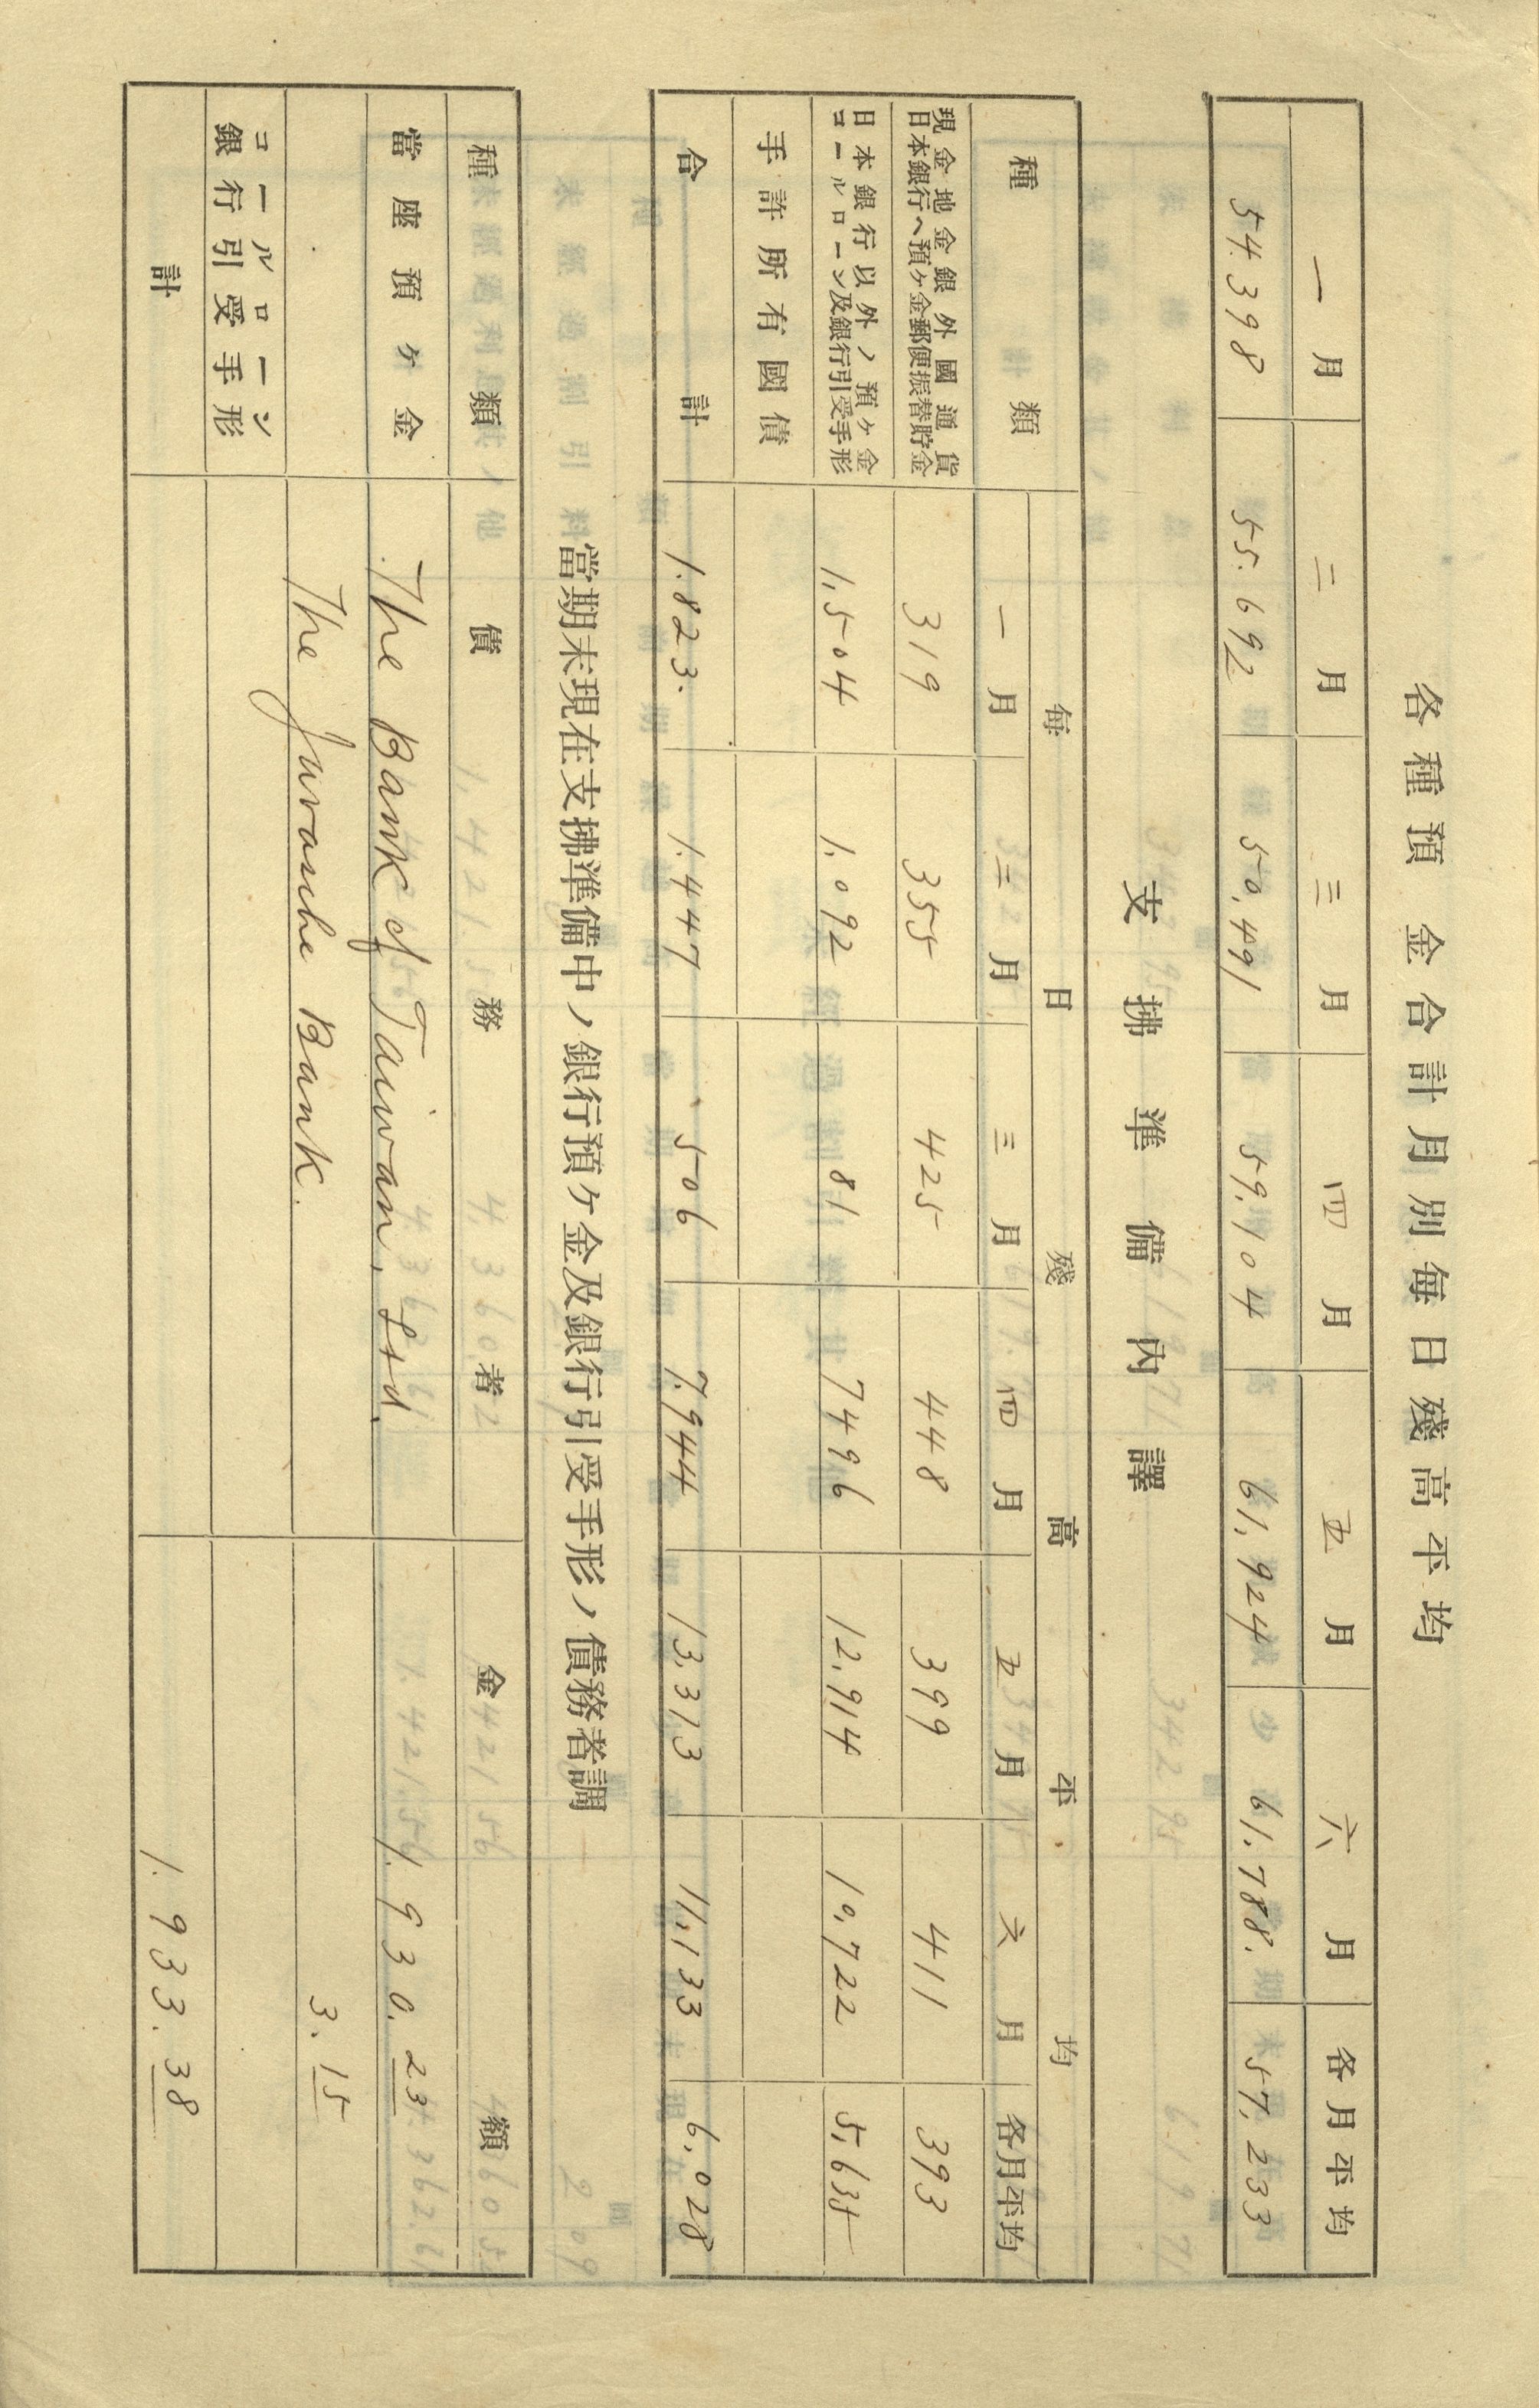 各種預金合計月別每日殘高平均
一月 二月 三月 四月 五月 六月 各月平均
54.398 55.692 50.491 59.104 61,924 61,788. 57,233
支拂準備內譯
種類 每日殘高平均
一月 二月 三月 四月 五月 六月 各月平均
現金地金銀外國通貨
日本銀行ヘ預ケ金郵便振替貯金
319 355 425 448 399 411 393
日本銀行以外ノ預ケ金
コールローン及銀行引受手形
1,504 1,092 81 7496 12,914 10,722 5,635
手許所有國債
合計 1.823. 1.447 506 7.944 13,313 11,133 6,028
當期末現在支拂準備中ノ銀行預ケ金及銀行引受手形ノ債務者調
種類 債務者 金額
當座預ケ金 The Bank of Taiwan, Ltd. 1.930.23
The Javasche Bank. 3.15
コールローン
銀行引受手形
計 1.933.38